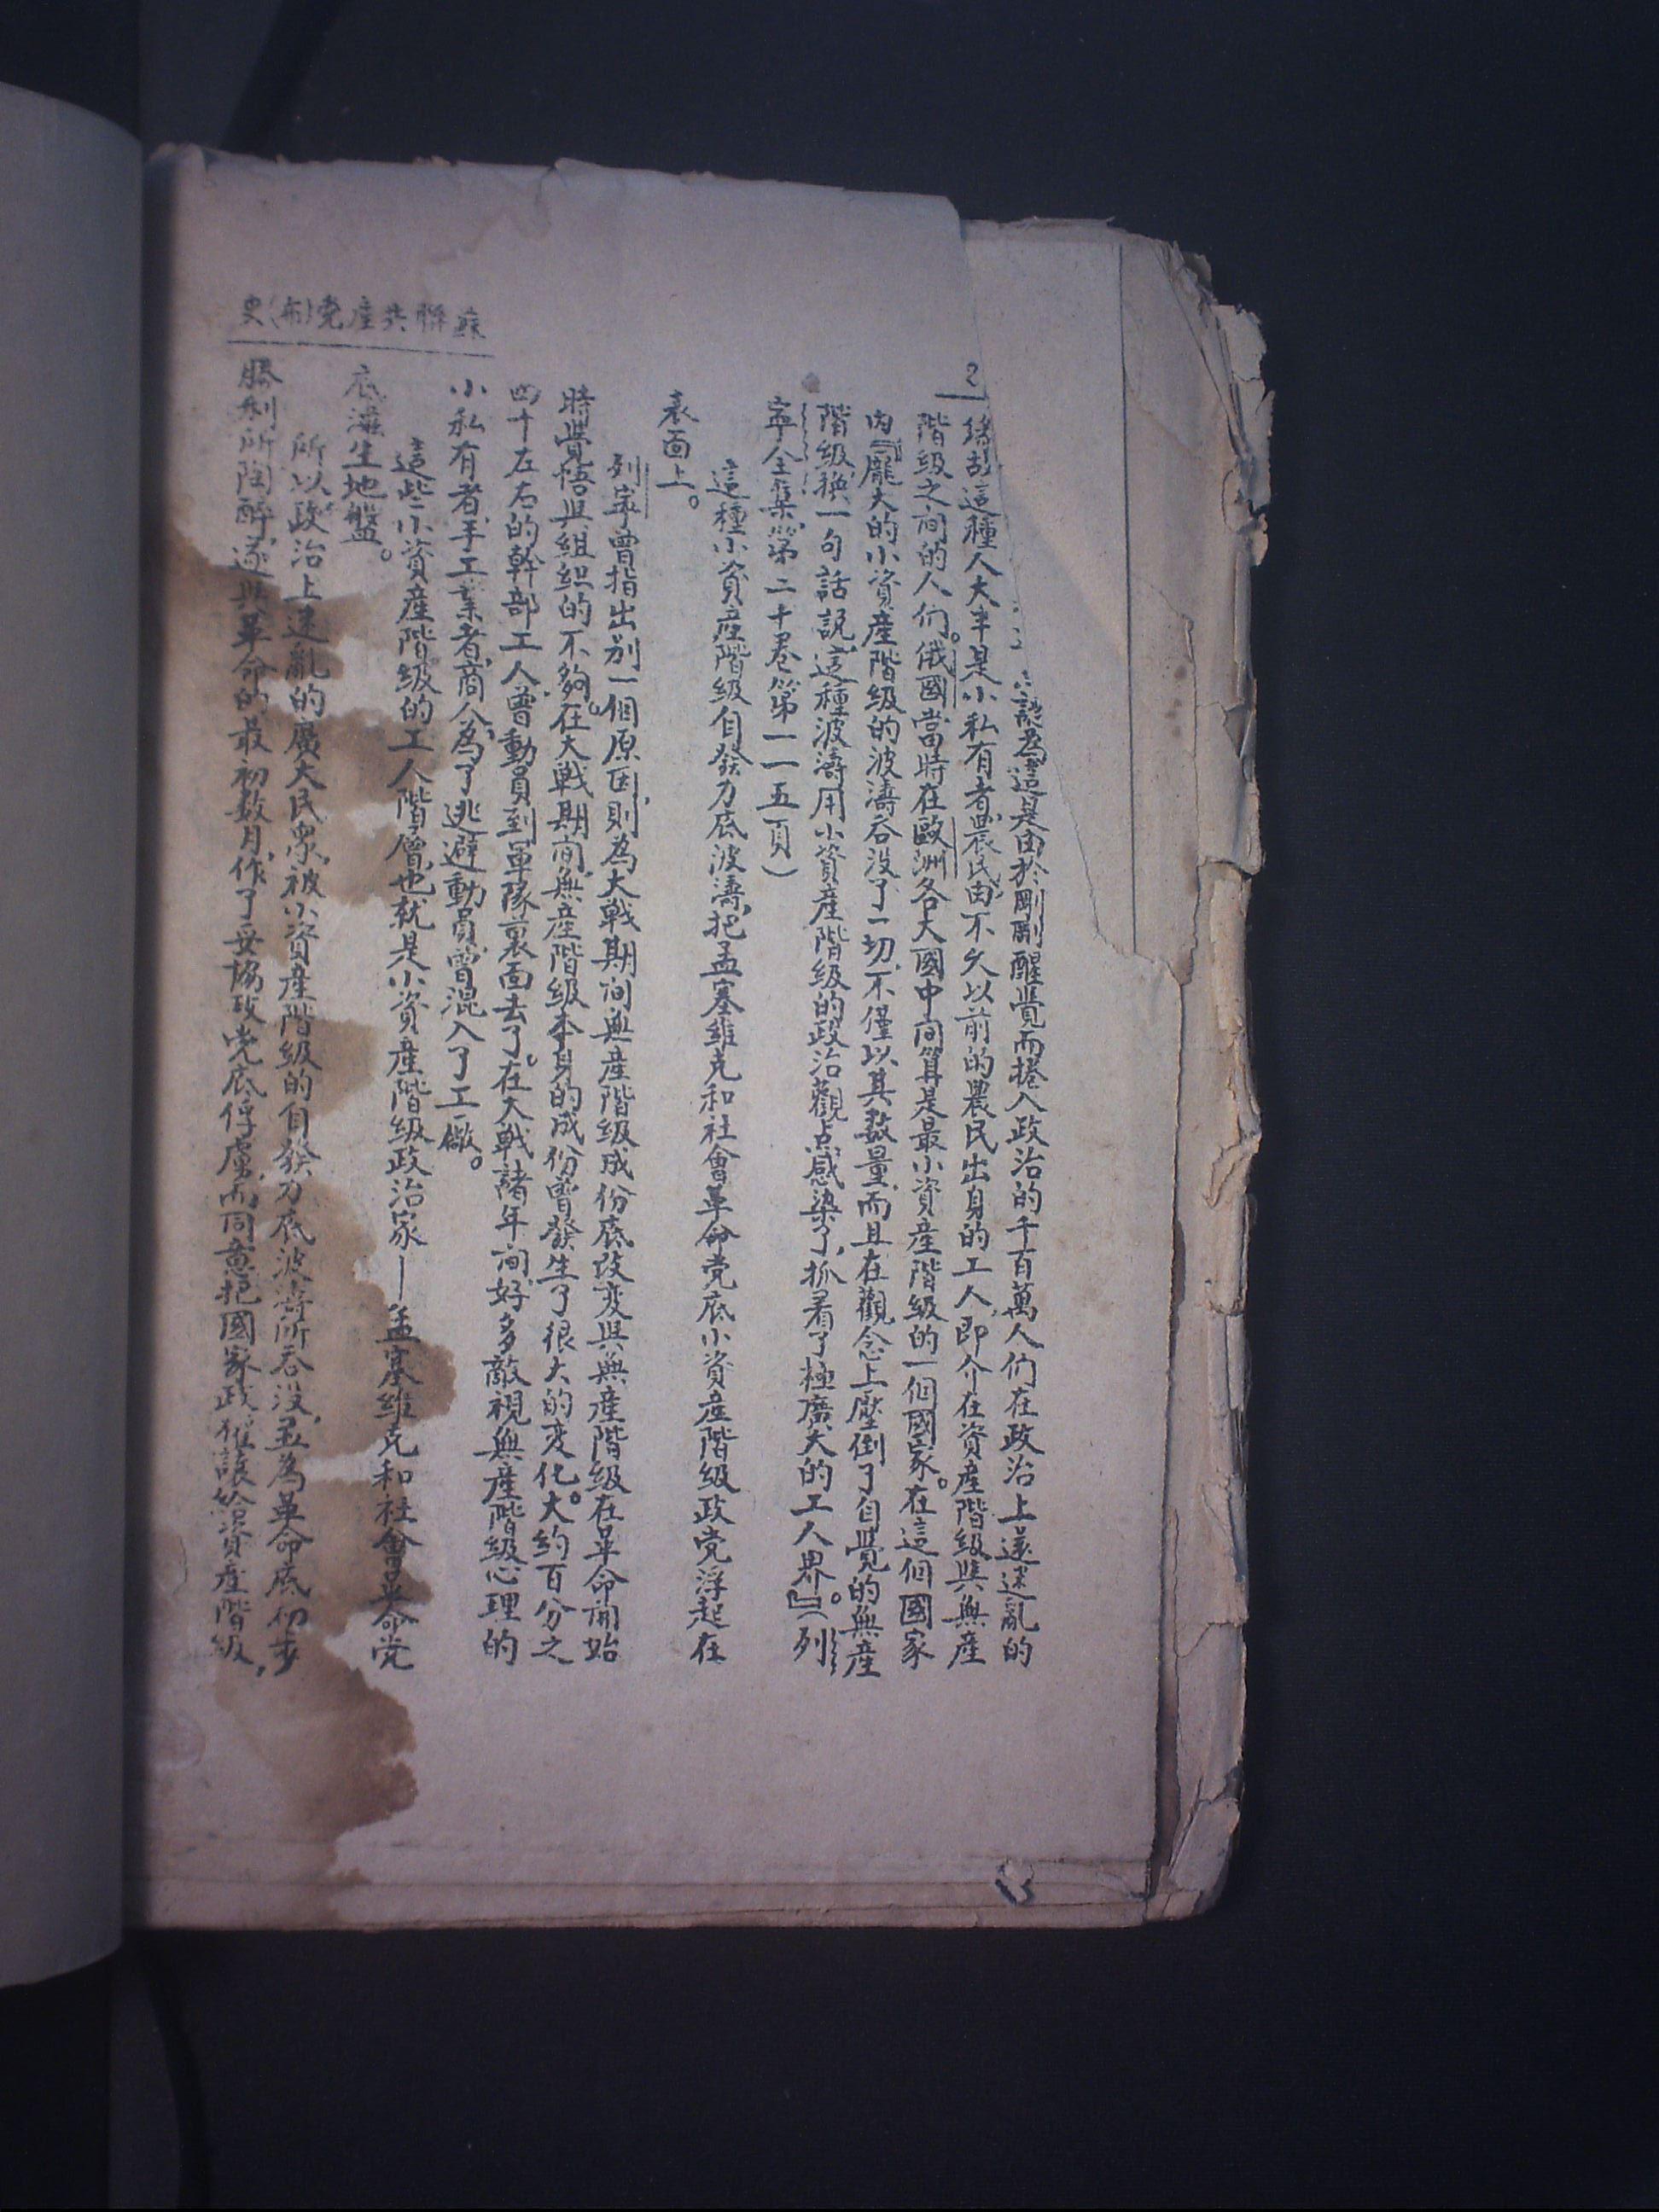 蘇聯共產党(布)史
2
認為這是由於剛剛醒覺而捲入政治的千百萬人们在政治上還迷亂的
緣故這種人大半是小私有者,農民,由不久以前的農民出身的工人,即介在資產階級與無產
階級之间的人们。俄國當時在歐洲各大國中间算是最小資產階級的一個國家。在這個國家
内『龐大的小資產階級的波濤吞没了一切,不僅以其数量,而且在觀念上壓倒了自覺的無產
階級,换一句話説,這種波濤用小資產階級的政治觀点感染了,抓着了極廣大的工人界。』(列
寧全集,第二十卷,第一一五頁)
這種小資產階級自發力底波濤,把孟塞維克和社會革命党底小資產階級政党浮起在
表面上。
列寧曾指出别一個原因,則為大戰期间無產階級成份底改变與無產階級在革命開始
時覺悟與組织的不夠。在大戰期间,無產階級本身的成份曾發生了很大的变化。大約百分之
四十左右的幹部工人曾動員到軍隊裏面去了。在大戰諸年间,好多敵視無產階級心理的
小私有者,手工業者,商人,為了逃避動員,曾混入了工廠。
這些小資產階級的工人階層,也就是小資產階級政治家——孟塞維克和社會革命党
底滋生地盤。
所以政治上迷亂的廣大民衆,被小資產階級的自發力底波濤所吞没,並為革命底初步
勝利所陶醉,遂與革命的最初数月,作了妥協政党底俘虜,而同意把國家政權讓給資產階級,